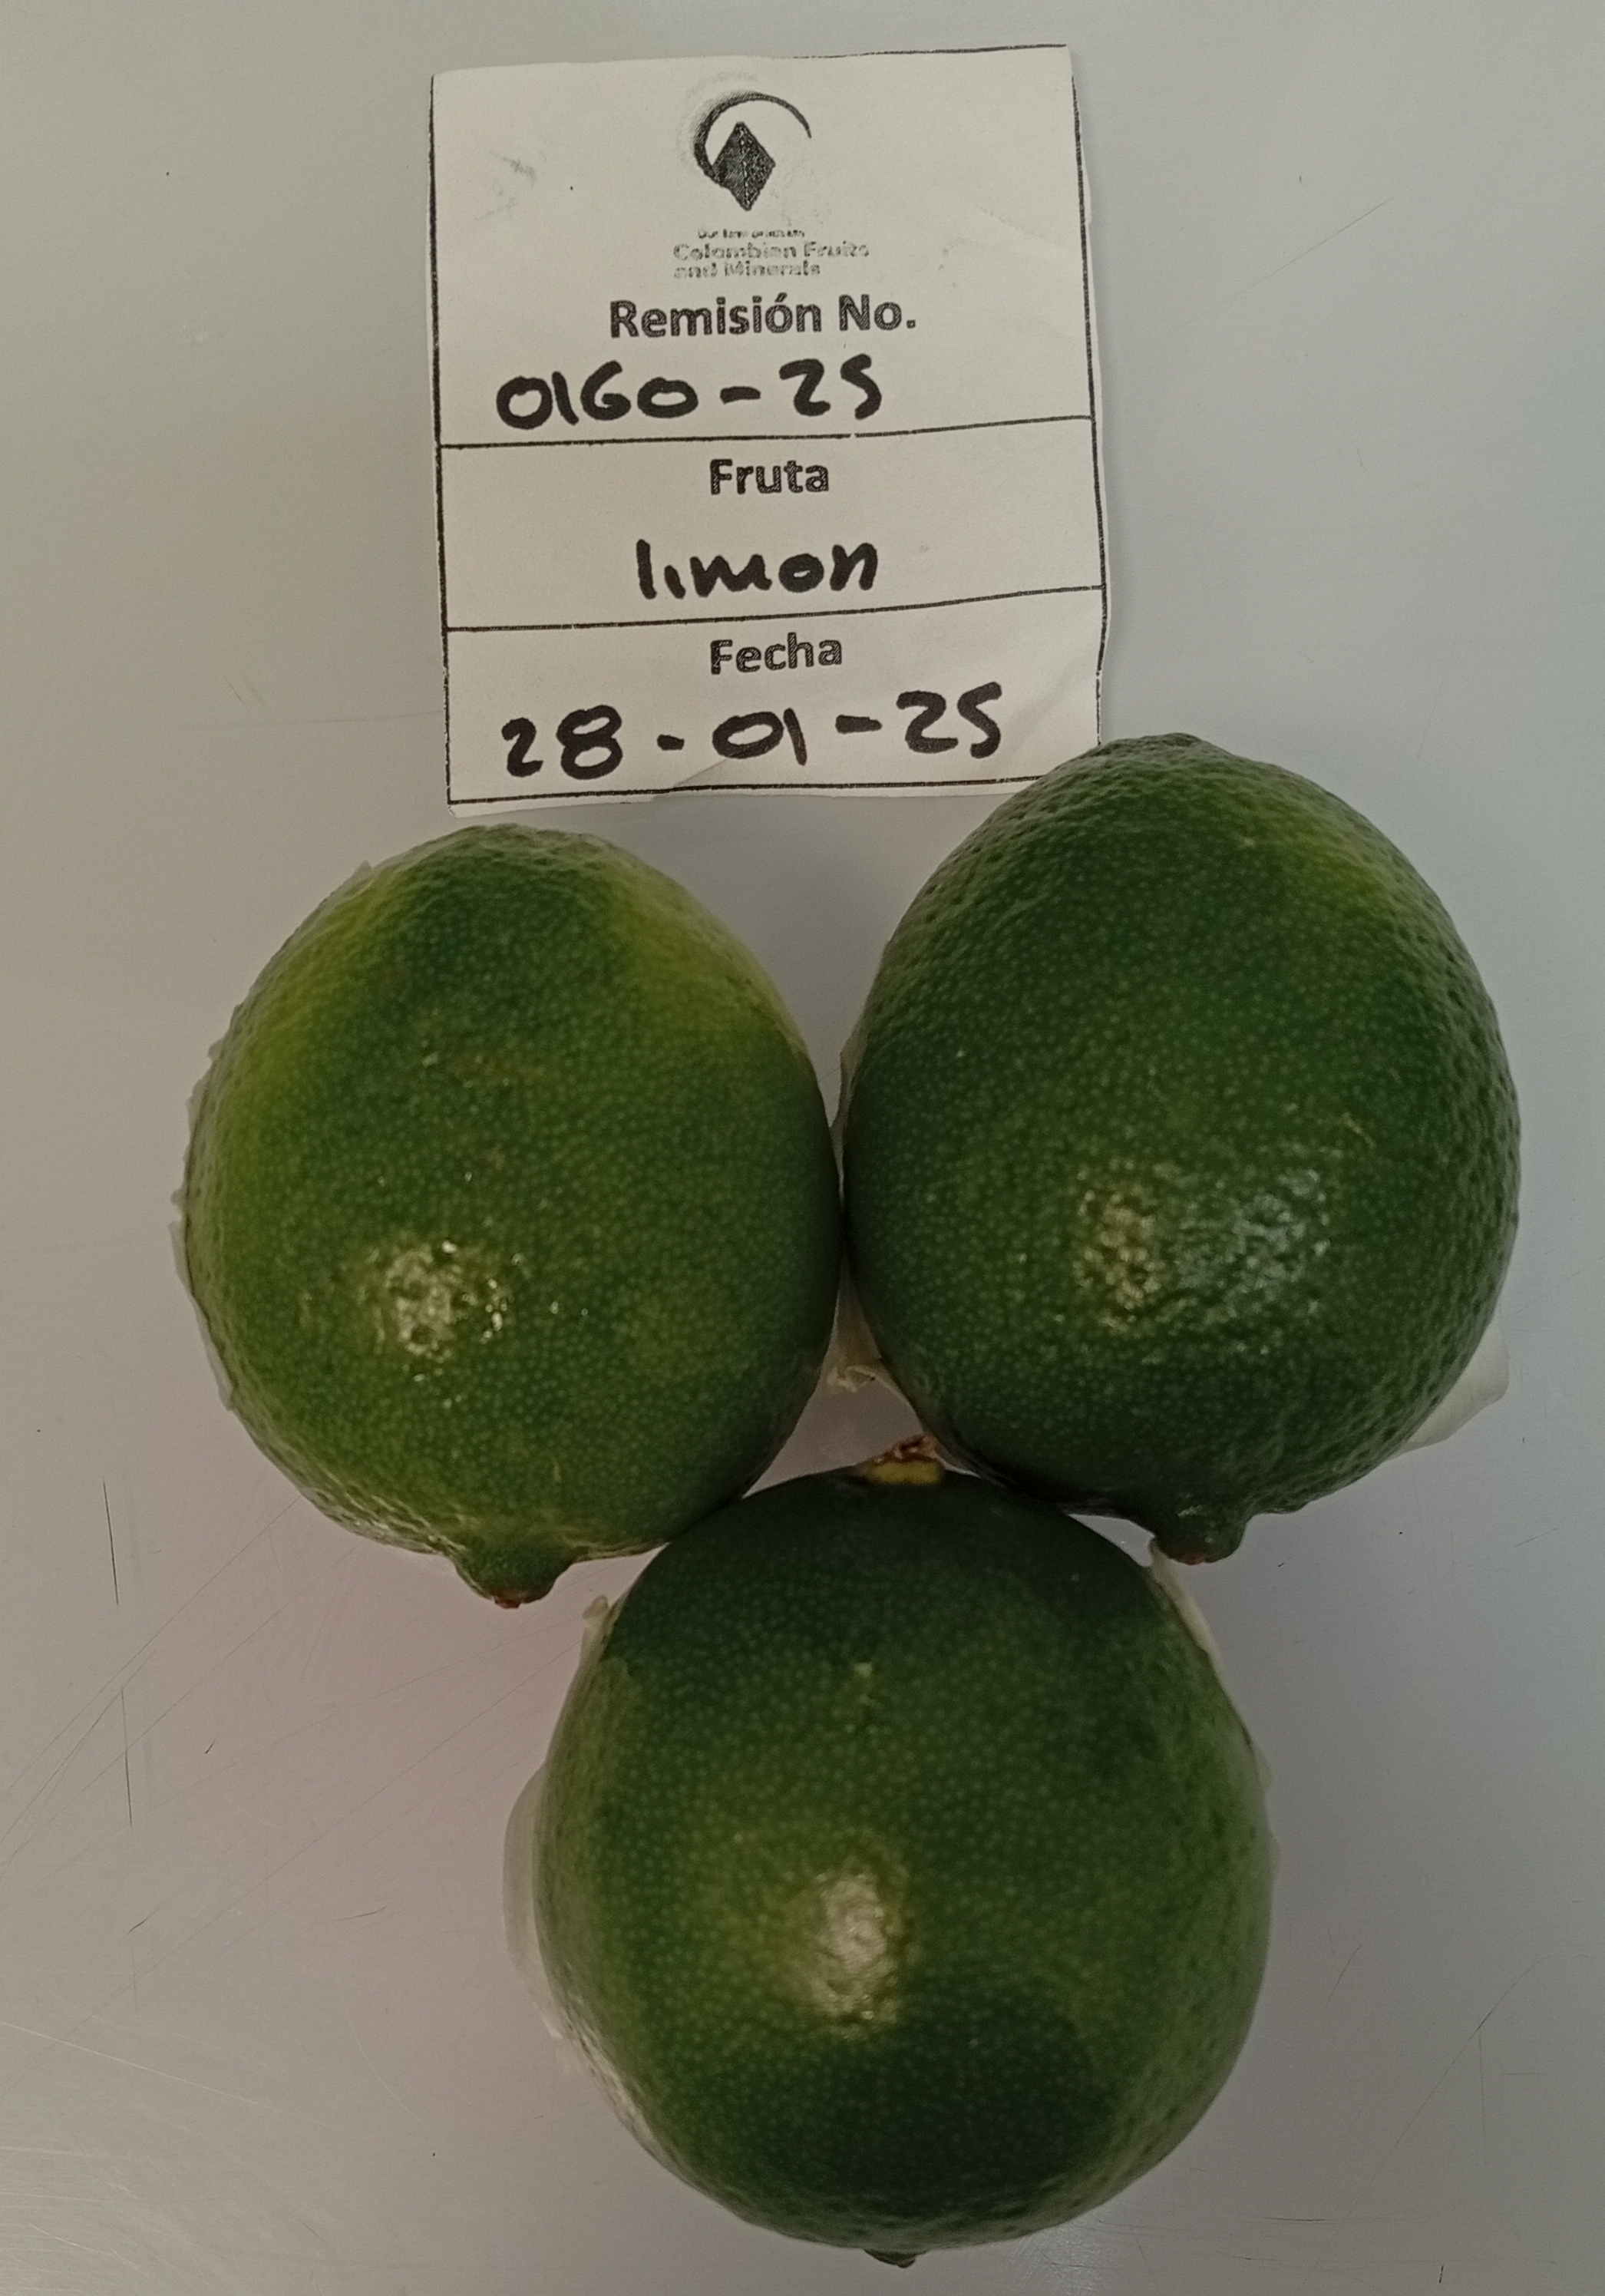 Colombian Fruits
and Minerals
Remisión No.
0160-25
Fruta
limon
Fecha
28-01-25